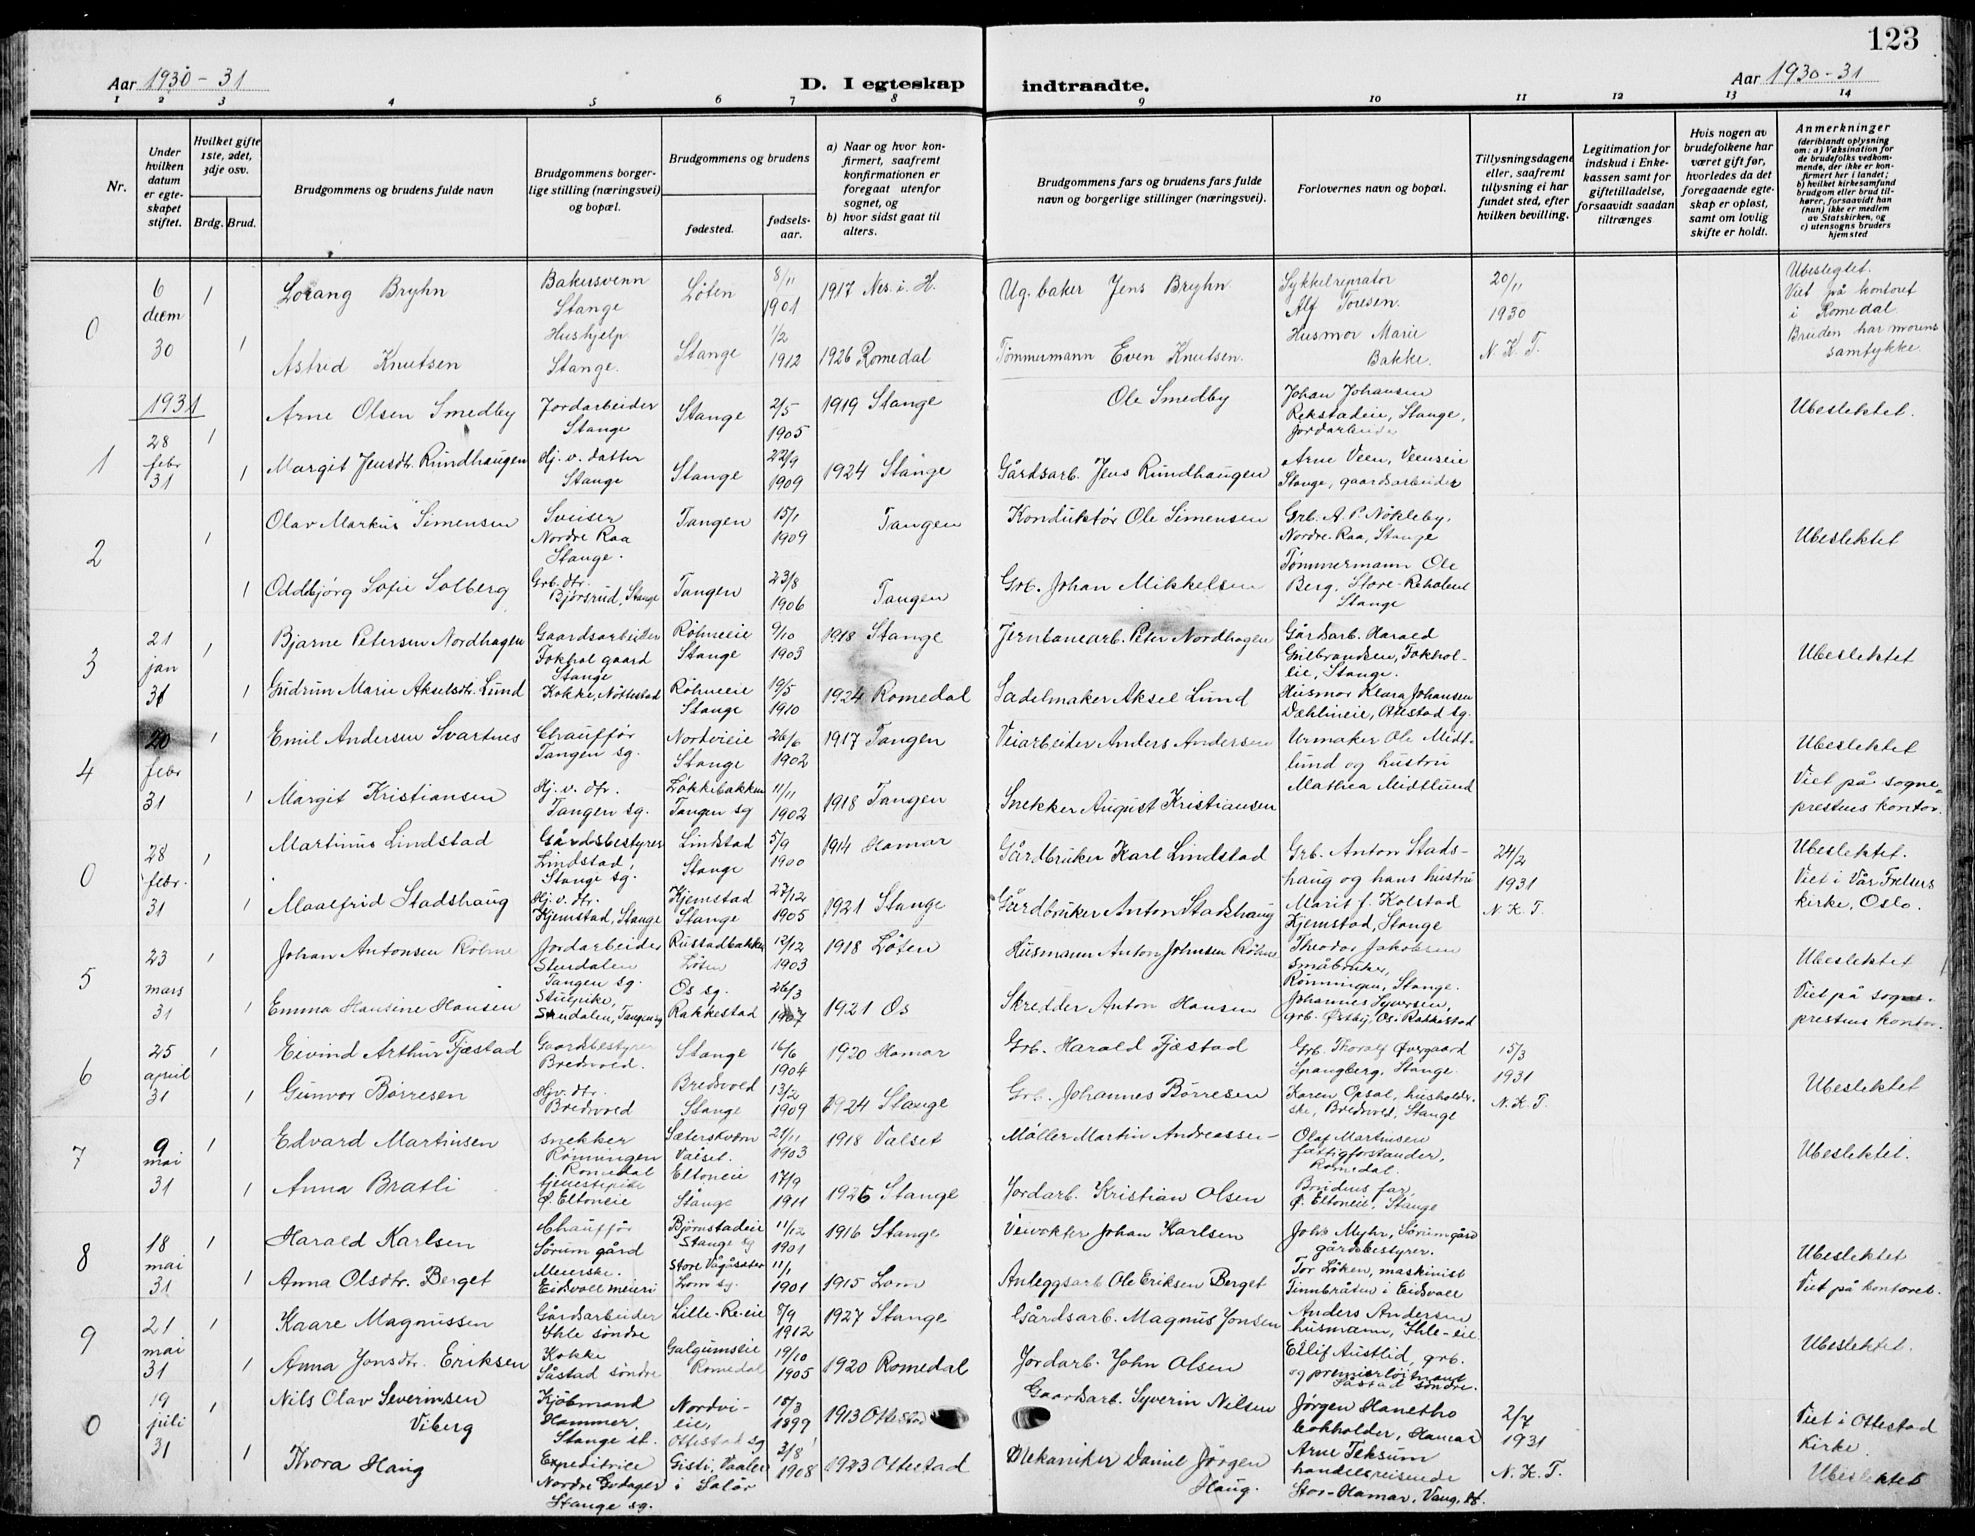 123
Aar 1930 - 31
D. I egteskap indtraadte.
Aar 1930 - 31
1 2 3 4 5 6 7 8 9 10 11 12 13 14
Nr.
Under hvilken datum er egteskapet stiftet.
Hvilket gifte 1ste, 2det, 3dje osv.
Brdg. Brud.
Brudgommens og brudens fulde navn
Brudgommens borgerlige stilling (næringsvei) og bopæl.
Brudgommens og brudens
fødested.
fødselsaar.
a) Naar og hvor konfirmert, saafremt konfirmationen er foregaat utenfor sognet, og
b) hvor sidst gaat til alters.
Brudgommens fars og brudens fars fulde navn og borgerlige stillinger (næringsvei).
Forlovernes navn og bopæl.
Tillysningsdagene eller, saafremt tillysning ei har fundet sted, efter hvilken bevilling.
Legitimation for indskud i Enkekassen samt for giftetilladelse, forsaavidt saadan tiltrænges
Hvis nogen av brudefolkene har været gift før, hvorledes da det foregaaende egteskap er opløst, samt om lovlig skifte er holdt.
Anmerkninger (deriblandt oplysning om: a) Vaksination for de brudefolks vedkommende, der ikke er konfirmert her i landet; b) hvilket kirkesamfund brudgom eller brud tilhører, forsaavidt han (hun) ikke er medlem av Statskirken, og c) utensogns bruders hjemsted
0 6 decem 30
1 Lorang Bryhn Bakersvenn Stange Løten 8/11 1901 1917 Nes. i. H. Ug. baker Jens Bryhn Sykkelreprator Alf Toresen. 20/11 1930 N. K. T. Ubeslegtet. Viet på kontoret i Romedal. Bruden har morens samtykke.
1 Astrid Knutsen Hushjelp Stange. Stange 1/2 1912 1926 Romedal Tømmermann Even Knutsen. Husmor Marie Bakke.
1931
1 28 febr 31
1 Arne Olsen Smedby Jordarbeider Stange Stange 2/5 1905 1919 Stange Ole Smedby Johan Johansen Rekstadeie, Stange, jordarbeide Ubeslektet.
1 Margit Jensdtr. Rundhaugen Hj. v. datter Stange Stange 22/9 1909 1924 Stange Gårdsarb. Jens Rundhaugen Arne Veen, Veenseie Stange, gaardsarbeider
2
1 Olav Markus Simensen Sveiser Nordre Raa Stange. Tangen 15/1 1909 Tangen Konduktør Ole Simensen Grb. A. P. Nökleby, Nordre-Raa, Stange Ubeslektet
1 Oddbjørg Sofie Solberg Grb. dtr. Bjørsrud, Stange Tangen 23/8 1906 Tangen Grb. Johan Mikkelsen Tømmermann Ole Berg, Store- Stange
3 21 jan 31
1 Bjarne Petersen Nordhagen Gaardsarbeider Fokhol gaard Stange Røhneeie Stange 9/10 1903 1918 Stange Jernbanearb. Peter Nordhagen Gårdsarb. Harald Gulbrandsen, Fokholeie, Stange. Ubeslektet
1 Gudrun Marie Akselsdtr. Lund Kokke, Nøttestad Røhneeie Stange 19/5 1910 1924 Romedal Sadelmaker Aksel Lund Husmor Klara Johansen Dæhlineie, Ottestad sg.
4 20 febr 31
1 Emil Andersen Svartnes Chauffør Tangen sg. Nordvieie Stange 26/6 1902 1917 Tangen Veiarbeider Anders Andersen Urmaker Ole Midtlund og hustru Mathea Midtlund Ubeslektet Viet på sogneprestens kontor.
1 Margit Kristiansen Hj. v. dtr. Tangen sg. Løkkebakken Tangen sg 11/11 1902 1918 Tangen Snekker August Kristiansen
0 28 febr. 31
1 Martinus Lindstad Gårdsbestyrer Lindstad, Stange sg. Lindstad Stange 5/9 1900 1914 Hamar Gårdbruker Karl Lindstad Grb. Anton Stadshaug og hans hustru Marit f. Kolstad Kjemstad, Stange 24/2 1931 N. K. T. Ubeslektet. Viet i Vår Frelsers kirke, Oslo.
1 Maalfrid Stadshaug Hj. v. dtr. Kjemstad, Stange Kjemstad Stange 27/12 1905 1921 Stange Gårdbruker Anton Stadshaug
5 23 mars 31
1 Johan Antonsen Røhne Jordarbeider Stendalen Tangen sg. Rustadbakken Løten 12/12 1903 1918 Løten Husmann Anton Johnsen Røhne Theodor Jakobsen småbruker, Rønningen, Stange. Ubeslektet Viet på sogneprestens kontor.
1 Emma Hansine Hansen Stuepike, Stendalen, Tangen sg Os sg. Rakkestad 26/3 1907 1921 Os Skredder Anton Hansen Johannes Syversen, grb. Østby, Os i Rakkestad
6 25 april 31
1 Eivind Arthur Fjæstad Gaardsbestyrer Bredvold. Stange 16/6 1904 1920 Hamar Grb. Harald Fjæstad Grb. Thoralf Øvergaard Spangberg, Stange. 15/3 1931 N. K. T. Ubeslektet
1 Gunvor Børresen Hjv. dtr. Bredvold Bredvold Stange 13/2 1909 1924 Stange Grb. Johannes Børresen Karen Opsal, husholderske, Bredvold, Stange
7 9 mai 31
1 Edvard Martinsen snekker Rønningen Romedal Sæterskvern Valset. 21/11 1903 1918 Valset Møller Martin Andreassen Olaf Martinsen fattigforstander, Romedal. Ubeslektet.
1 Anna Bratli tjenestepike Ø. Eltoneie Eltoneie Stange 17/9 1911 1926 Stange Jordarb. Kristian Olsen Brudens far, Ø. Eltoneie, Stange
8 18 mai 31
1 Harald Karlsen Chauffør Sørum gård Bjørnstadeie Stange sg 11/12 1901 1916 Stange Veivokter Johan Karlsen Johs Myhr, Sørum gård gårdsbestyrer. Ubeslektet Viet på kontoret.
1 Anna Olsdtr. Berget Meierske. Eidsvoll meieri Store Vågåsæter Lom sg. 11/1 1901 1915 Lom Anleggsarb Ole Eriksen Berget Tor Løken, maskinist Finnbråten i Eidsvoll
9 21 mai 31
1 Kaare Magnussen Gårdsarbeider Ihle søndre Lille-Re-eie 8/9 1912 1927 Stange Gårdsarb. Magnus Jonsen Anders Andersen husmann, Ihle-eie Ubeslektet.
1 Anna Jonsdtr. Eriksen Kokke Såstad søndre Galgumseie Romedal 19/10 1905 1920 Romedal Jordarb. John Olsen Eilif Austlid, grb. og premierløitnant Såstad søndre.
0 19 juli 31
1 Nils Olav Severinsen Viberg Kjøbmand Hammer, Stange st. Nordvieie, Ottestad sg 18/3 1899 1913 Ottestad Gaardsarb. Syverin Nilsen Jørgen Hanetho bokholder, Hamar 2/7 1931 N. K. T. Viet i Ottestad Kirke. Ubeslektet
1 Thora Haug Expeditrice Nordre Godager Stange sg. Gisti, Vaaler i Solør 3/8 1908 1923 Ottestad Mekaniker Daniel Jørgen Haug. Arne Teksum handelsreisende Stor-Hamar, Vang, H.